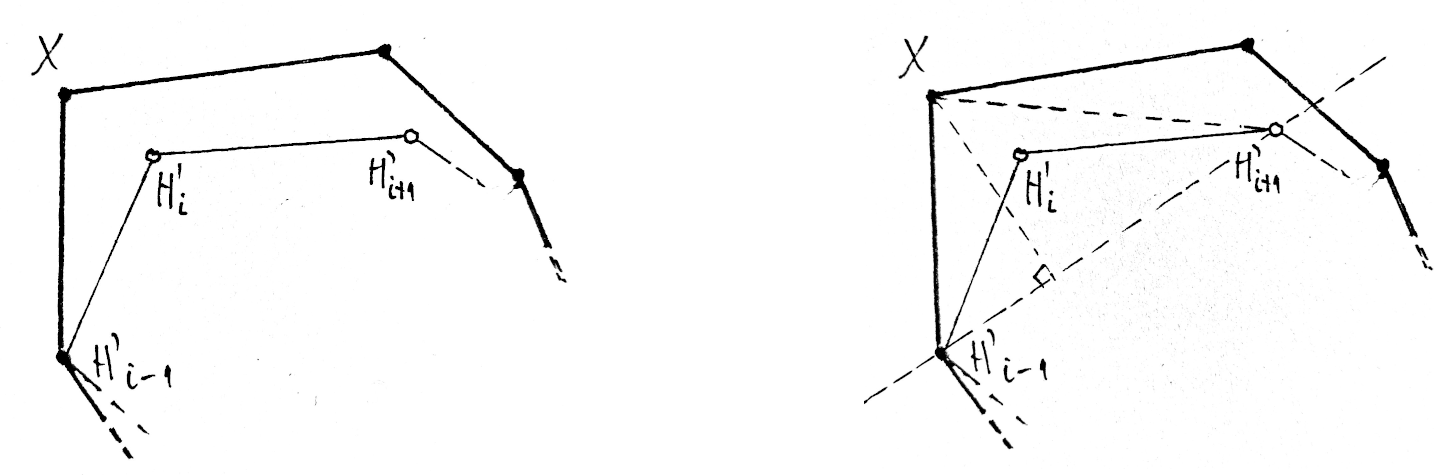 X
H'i
H'i+1
H'i-1
X
H'i
H'i+1
H'i-1